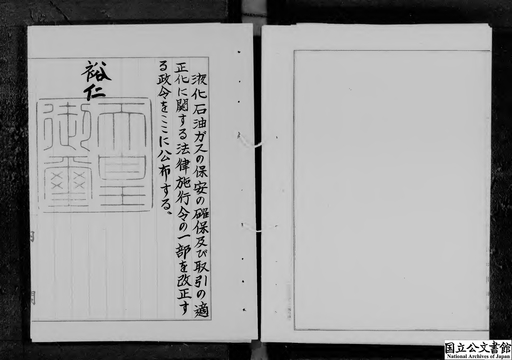 液化石油ガスの保安の確保及び取引の適
正化に関する法律施行令の一部を改正す
る政令をここに公布する、
裕仁
天皇
御璽
国立公文書館
National Archives of Japan